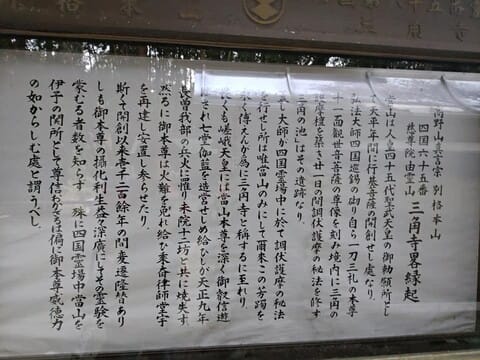 高野山真言宗 別格本山
四国六十五番
慈尊院由霊山 三角寺畧縁起
当山は人皇四十五代聖武天皇の御勅願所とし
天平年間に行基菩薩の開創せし処なり
弘法大師四国巡錫の御り自ら一刀三礼の本尊
十一面観世音菩薩の尊像を刻み境内に三角の
護摩壇を築き廿一日の間調伏護摩の秘法を修す
三角の池はその遺跡なり
大師が四国霊場中に於て調伏護摩の秘法
を行せし所は唯當山のみにして爾来この芳躅を
永く傳えんが為に三角寺と稱するに至れり
くも嵯峨天皇には當山本尊を深く御敬信遊
され七堂伽藍を造営せしめ給ひしが天正九年
長曽我部の兵火に罹り末院十二坊と共に焼失す
然るに御本尊は火難を免れ給ひ乗奇律師堂宇
を再建し安置し参らせたり
斯くて開創以来壱千二百餘年の間変遷隆替あり
しも御本尊の攝化利生盛々深廣にしてその霊驗を
蒙むる者数を知らず 殊に四国霊場中當山を
伊予の関所として尊信おかざるは偏に御本尊威徳力
の如からしむ處と謂うべし